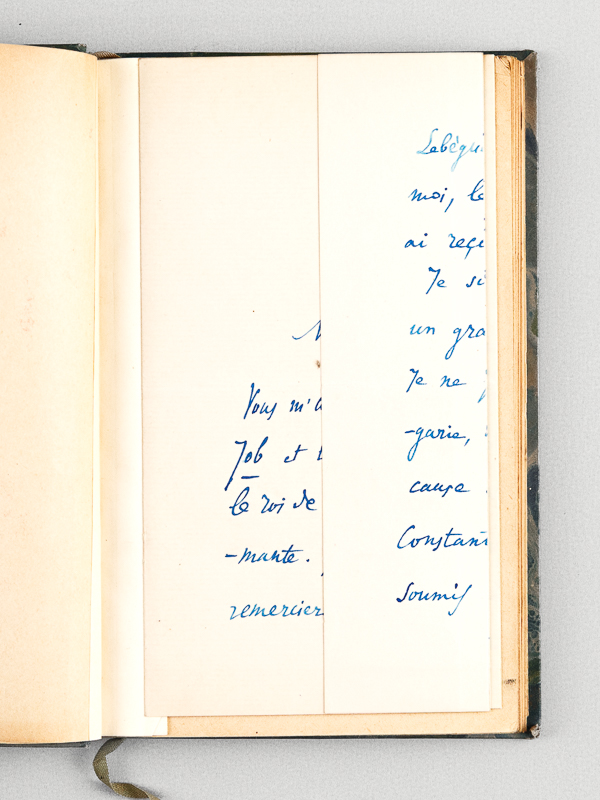 Vous m'a
Job et
le roi de
-mante.
remercier
Lebègu
moi, le
ai reçu
Je su
un gra
Je ne
-garie,
cause
Constant
soumis